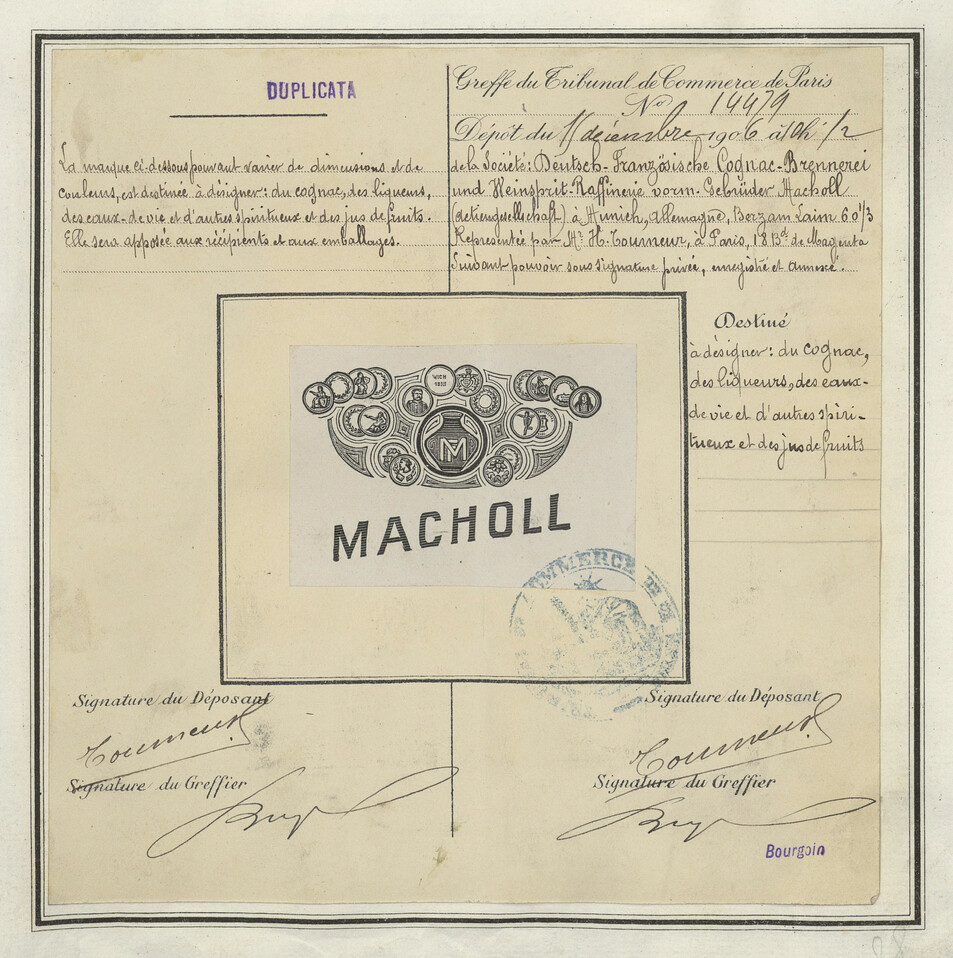 DUPLICATA
La marque ci-dessous pouvant varier de dimensions et de
couleurs, est destinée à désigner: du cognac, des liqueurs,
des eaux-de vie et d'autres spiritueux et des jus de fruits.
Elle sera apposée aux récipients et aux emballages.
Greffe du Tribunal de Commerce de Paris
No 14479
Dépôt du 11 décembre 1906 à 10h 1/2
de la Société: Deutsch-Französische Cognac-Brennerei
und Weinsprit-Raffinerie vorm. Gebrüder Macholl
(actiengesellschaft) à Munich, allemagne, Berg am Laim 60 1/3
Représentée par Mr H. Tourneur, à Paris, 18 Bd de Magenta
Suivant pouvoir sous signature privée, enregistré et annexé.
Destiné
à désigner: du cognac,
des liqueurs, des eaux-
de vie et d'autres spiri-
tueux et des jus de fruits
M
MACHOLL
COMMERCE DE
Signature du Déposant
Tourneur
Signature du Greffier
Signature du Déposant
Tourneur
Signature du Greffier
Bourgoin